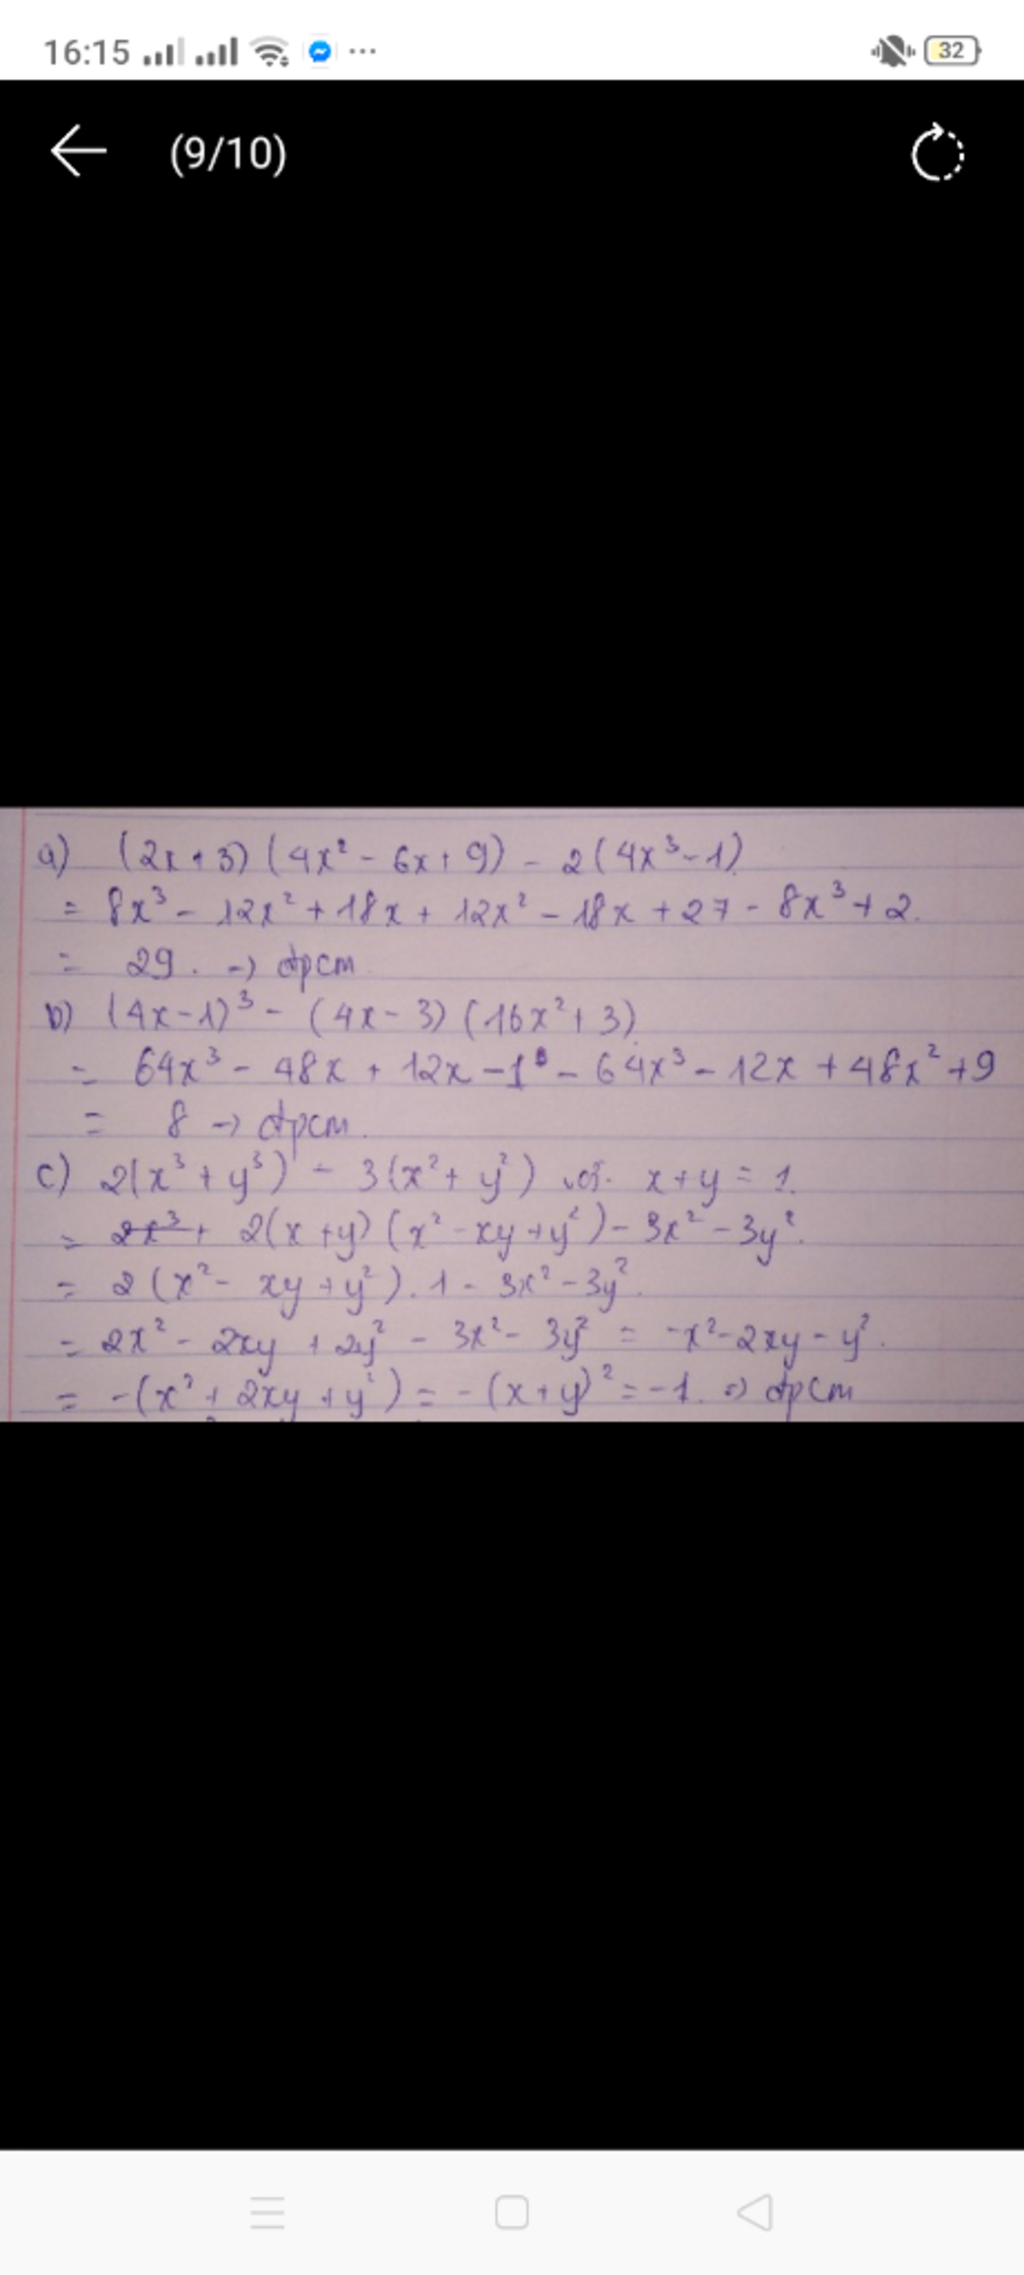 16:15
32
(9/10)
a) (2x+3)(4x² - 6x + 9) - 2(4x³-1)
= 8x³ - 12x² + 18x + 12x² - 18x + 27 - 8x³ + 2.
= 29. → đpcm
b) (4x-1)³ - (4x-3)(16x²+3)
= 64x³ - 48x + 12x - 1³ - 64x³ - 12x + 48x² + 9
= 8 → đpcm.
c) 2(x³ + y³) - 3(x² + y²) với x + y = 1.
= 2x³ + 2(x+y)(x² - xy + y²) - 3x² - 3y².
= 2(x² - xy + y²).1 - 3x² - 3y².
= 2x² - 2xy + 2y² - 3x² - 3y² = -x² - 2xy - y².
= -(x² + 2xy + y²) = -(x+y)² = -1. → đpcm